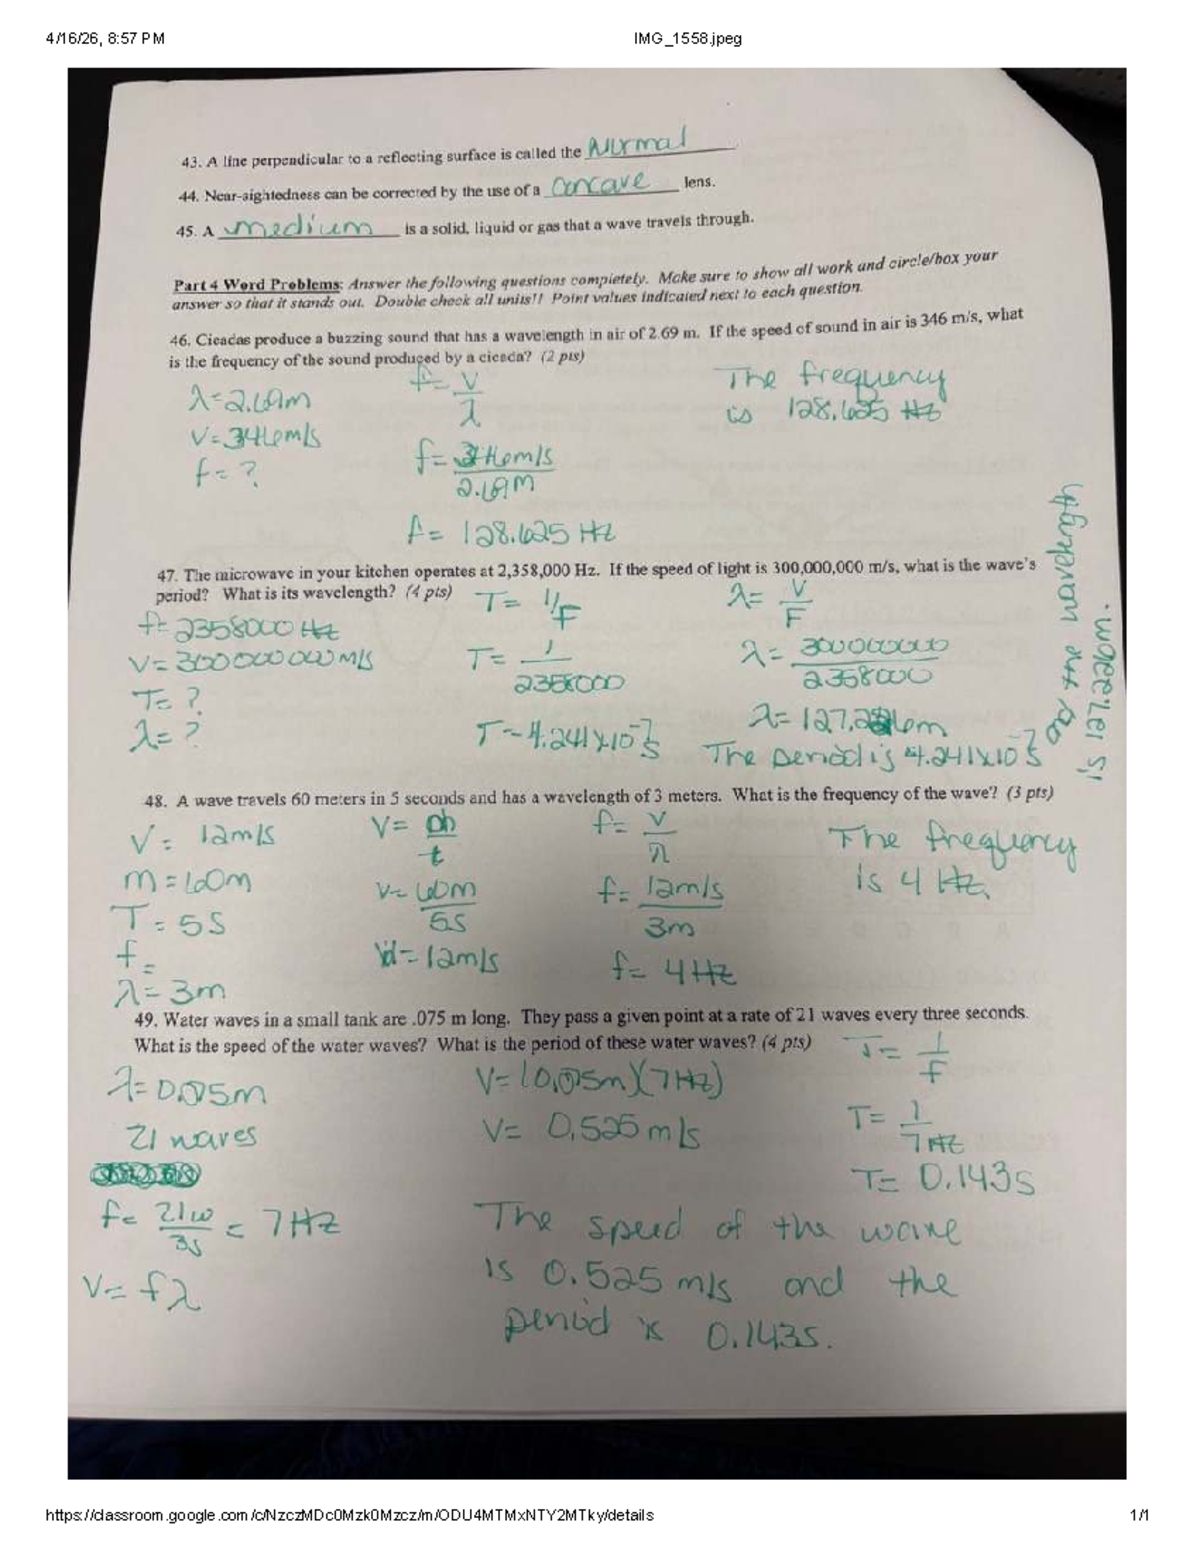 4/16/26, 8:57 PM IMG_1558.jpeg
43. A line perpendicular to a reflecting surface is called the Normal.
44. Near-sightedness can be corrected by the use of a concave lens.
45. A medium is a solid, liquid or gas that a wave travels through.
Part 4 Word Problems: Answer the following questions completely. Make sure to show all work and circle/box your
answer so that it stands out. Double check all units!! Point values indicated next to each question.
46. Cicadas produce a buzzing sound that has a wavelength in air of 2.69 m. If the speed of sound in air is 346 m/s, what
is the frequency of the sound produced by a cicada? (2 pts)
λ=2.69m
v=346m/s
f=?
f=v/λ
f=346m/s/2.69m
f=128.625 Hz
The frequency
is 128.625 Hz
47. The microwave in your kitchen operates at 2,358,000 Hz. If the speed of light is 300,000,000 m/s, what is the wave's
period? What is its wavelength? (4 pts)
f=2358000 Hz
v=300000000m/s
T=?
λ=?
T=1/F
T=1/2358000
T=4.241x10⁻⁷s
λ=V/F
λ=300000000/2358000
λ=127.226m
The period is 4.241x10⁻⁷s
and the wavelength
is 127.226m.
48. A wave travels 60 meters in 5 seconds and has a wavelength of 3 meters. What is the frequency of the wave? (3 pts)
V= 12m/s
m=60m
T=5s
f=
λ=3m
V=m/t
v=60m/5s
v=12m/s
f=v/λ
f=12m/s/3m
f=4Hz
The frequency
is 4 Hz.
49. Water waves in a small tank are .075 m long. They pass a given point at a rate of 21 waves every three seconds.
What is the speed of the water waves? What is the period of these water waves? (4 pts)
λ=0.075m
21 waves
f=21w/3s=7Hz
v=fλ
V=(0.075m)(7Hz)
V=0.525m/s
T=1/f
T=1/7Hz
T=0.143s
The speed of the wave
is 0.525 m/s and the
period is 0.143s.
https://classroom.google.com/c/NzczMDc0Mzk0Mzcz/m/ODU4MTMxNTY2MTky/details 1/1